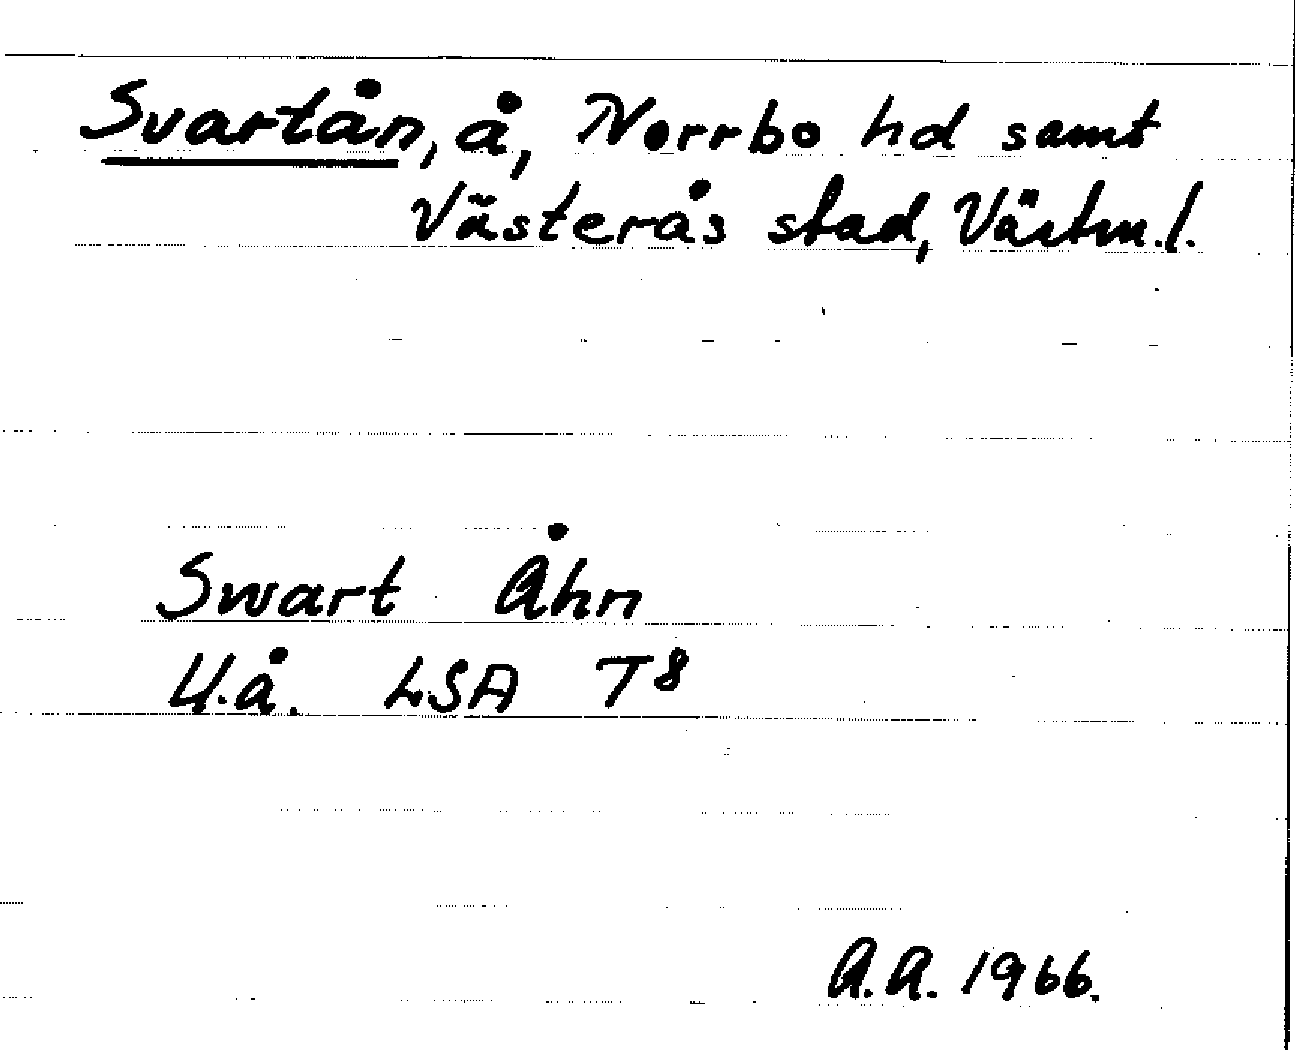 Svartån, å, Norrbo hd samt
Västerås stad, Västm. l.
Swart Åhn
U.å. LSA T8
A.A. 1966.